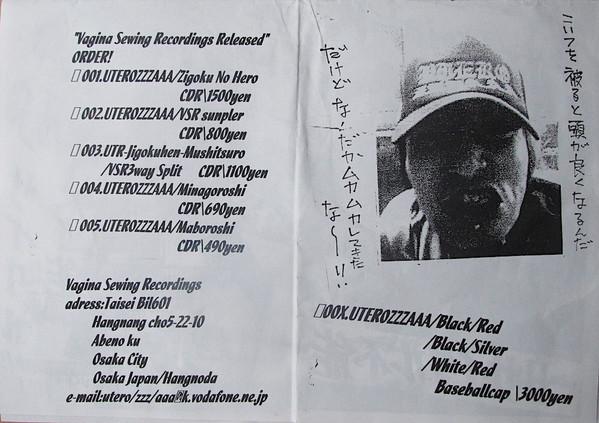 "Vagina Sewing Recordings Released"
ORDER!
▯001.UTEROZZZAAA/Zigoku No Hero
CDR\1500yen
▯002.UTEROZZZAAA/VSR sunpler
CDR\800yen
▯003.UTR-Jigokuhen-Mushitsuro
/VSR3way Split CDR\1100yen
▯004.UTEROZZZAAA/Minagoroshi
CDR\690yen
▯005.UTEROZZZAAA/Maboroshi
CDR\490yen
Vagina Sewing Recordings
adress:Taisei Bil601
Hangnang cho5-22-10
Abeno ku
Osaka City
Osaka Japan/Hangnoda
e-mail:utero/zzz/aaa▯k.vodafone.ne.jp
こいつを被ると頭が良くなるんだ
だけどな!だかムカムカしてきた
な〜!!
▯00X.UTEROZZZAAA/Black/Red
/Black/Silver
/White/Red
Baseballcap \3000yen